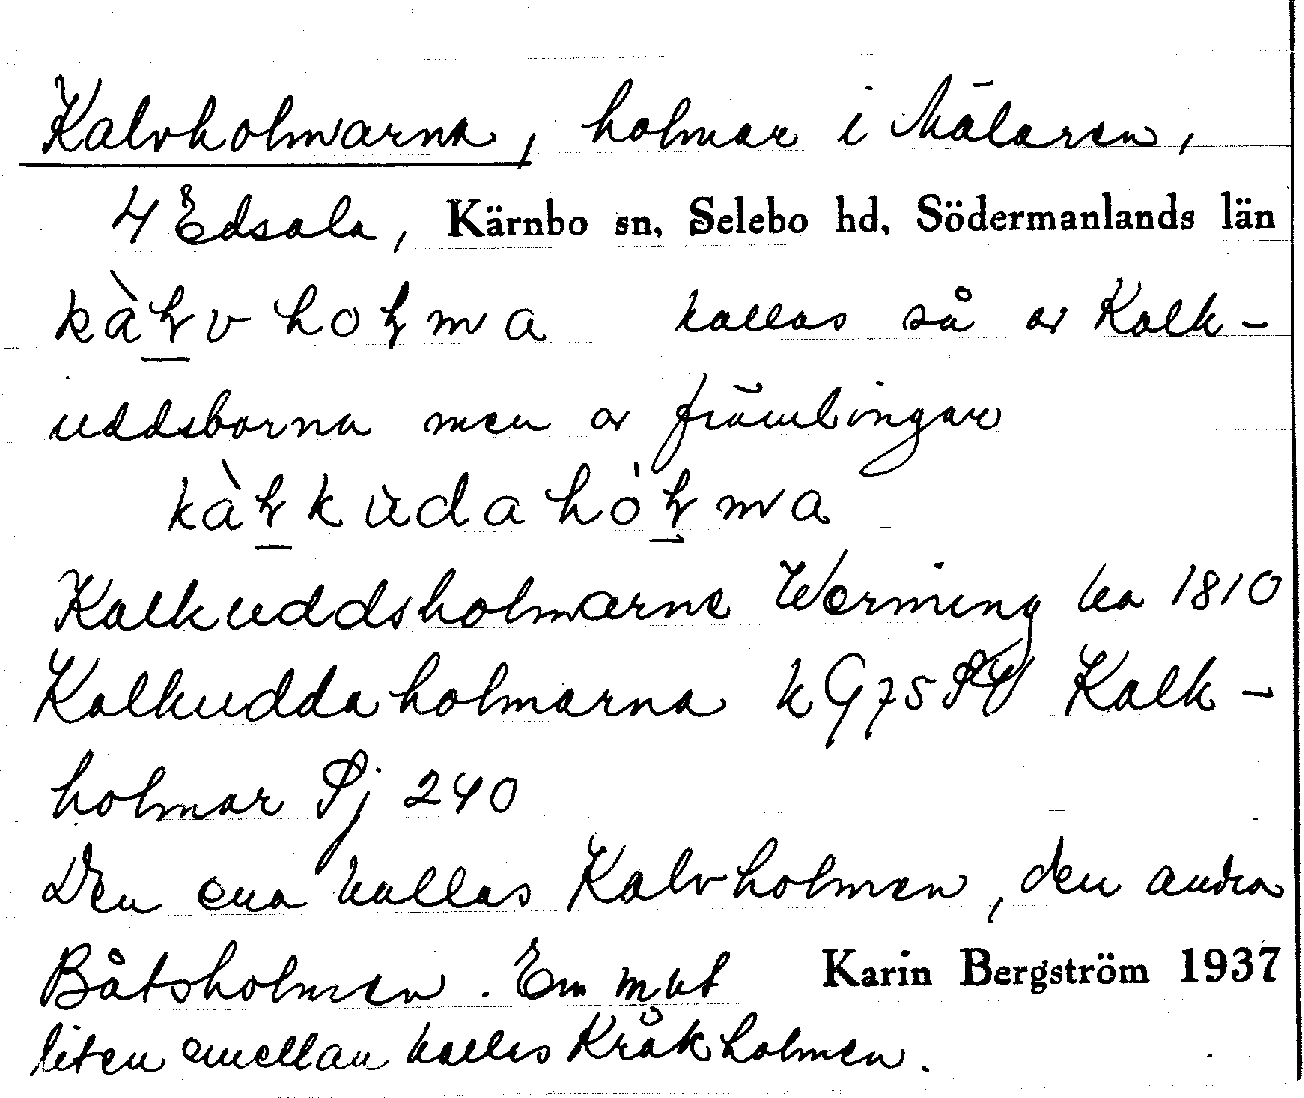 Kalvholmarna, holmar i Mälaren,
4 Edsala, Kärnbo sn, Selebo hd, Södermanlands län
kallas så av Kalk-
uddsborna men av främlingar
Kalkuddsholmarne Werming ka 1810
Kalkudda holmarna k G 75 SV Kalk-
holmar Sj 240
Den ena kallas Kalvholmen, den andra
Båtsholmen. En mkt Karin Bergström 1937
liten emellan kallas Kråkholmen.